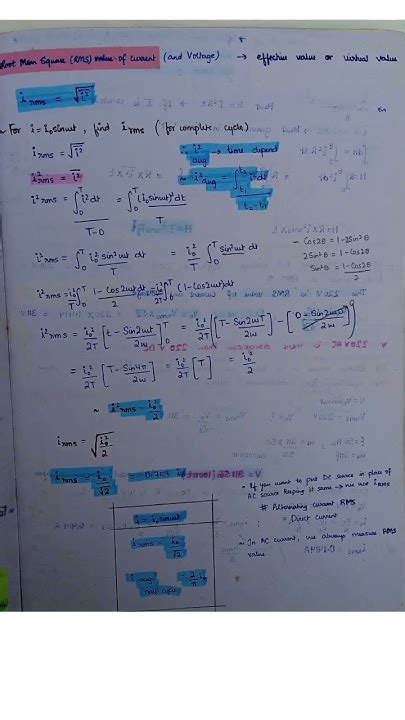 Root Mean Square (RMS) value of current (and Voltage) → effective value or virtual value
i rms = √i²
~ For i = i₀ sinωt, find i rms (for complete cycle)
i rms = √i²
i² → time depend
avg
i²rms = i²
i² avg = ∫ i² dt
t₂ - t₁
i²rms = ∫₀ᵀ i² dt = ∫₀ᵀ (i₀ sinωt)² dt
T-0 T
i²rms = ∫₀ᵀ i₀² sin²ωt dt = i₀² ∫₀ᵀ sin²ωt dt
T T
- Cos2θ = 1-2Sin²θ
2Sin²θ = 1-Cos2θ
Sin²θ = 1-Cos2θ
2
i²rms = i₀²/T ∫₀ᵀ 1-Cos2ωt dt = i₀² ∫₀ᵀ (1-Cos2ωt)dt
2 2T
i²rms = i₀²/2T [t - Sin2ωt / 2ω]₀ᵀ = i₀²/2T [[T - Sin2ωT / 2ω] - [0 - Sin2ω×0 / 2ω]]⁰
= i₀²/2T [T - Sin4π / 2ω] = i₀²/2T [T] = i₀²/2
~ i²rms = i₀²/2
i rms = √i₀²/2
i rms = i₀/√2 = 0.707 i₀
• If you want to put DC source in place of
AC source keeping it same → we use i RMS
# Alternating current, RMS
= Direct current
~ In AC current, we always measure RMS
value.
i = i₀ sinωt
i rms = i₀/√2
i avg = 2/π i₀
half cycle